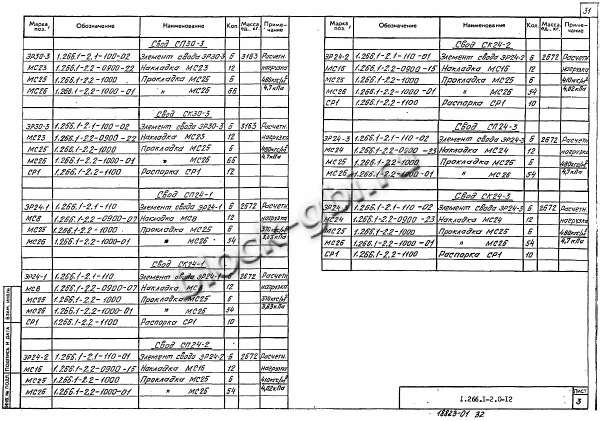 31
Марка, поз. Обозначение Наименование Кол Масса ед., кг. Приме-чание
Свод СП30-3
ЭР30-3 1.266.1-2.1-100-02 Элемент свода ЭР30-3 6 3163 Расчетн.
МС23 1.266.1-2.2-0900-22 Накладка МС23 12 нагрузка
МС25 1.266.1-2.2-1000 Прокладка МС25 6
МС26 1.266.1-2.2-1000-01 " МС26 66 4,7кПа
Свод СК30-3
ЭР30-3 1.266.1-2.1-100-02 Элемент свода ЭР30-3 6 3163 Расчетн.
МС23 1.266.1-2.2-0900-22 Накладка МС23 12 нагрузка
МС25 1.266.1-2.2-1000 Прокладка МС25 6
МС26 1.266.1-2.2-1000-01 " МС26 66 4,7кПа
СР1 1.266.1-2.2-1100 Распорка СР1 12
Свод СП24-1
ЭР24-1 1.266.1-2.1-110 Элемент свода ЭР24-1 6 2672 Расчетн.
МС8 1.266.1-2.2-0900-07 Накладка МС8 12 нагрузка
МС25 1.266.1-2.2-1000 Прокладка МС25 6
МС26 1.266.1-2.2-1000-01 " МС26 54 3,63кПа
Свод СК24-1
ЭР24-1 1.266.1-2.1-110 Элемент свода ЭР24-1 6 2672 Расчетн.
МС8 1.266.1-2.2-0900-07 Накладка МС8 12 нагрузка
МС25 1.266.1-2.2-1000 Прокладка МС25 6
МС26 1.266.1-2.2-1000-01 " МС26 54 3,63кПа
СР1 1.266.1-2.2-1100 Распорка СР1 10
Свод СП24-2
ЭР24-2 1.266.1-2.1-110-01 Элемент свода ЭР24-2 6 2672 Расчетн.
МС16 1.266.1-2.2-0900-15 Накладка МС16 12 нагрузка
МС25 1.266.1-2.2-1000 Прокладка МС25 6
МС26 1.266.1-2.2-1000-01 " МС26 54 4,02кПа
Марка, поз. Обозначение Наименование Кол Масса ед., кг. Приме-чание
Свод СК24-2
ЭР24-2 1.266.1-2.1-110-01 Элемент свода ЭР24-2 6 2672 Расчетн.
МС16 1.266.1-2.2-0900-15 Накладка МС16 12 нагрузка
МС25 1.266.1-2.2-1000 Прокладка МС25 6
МС26 1.266.1-2.2-1000-01 " МС26 54 4,02кПа
СР1 1.266.1-2.2-1100 Распорка СР1 10
Свод СП24-3
ЭР24-3 1.266.1-2.1-110-02 Элемент свода ЭР24-3 6 2672 Расчетн.
МС24 1.266.1-2.2-0900-23 Накладка МС24 12 нагрузка
МС25 1.266.1-2.2-1000 Прокладка МС25 6
МС26 1.266.1-2.2-1000-01 " МС26 54 4,7кПа
Свод СК24-3
ЭР24-3 1.266.1-2.1-110-02 Элемент свода ЭР24-3 6 2672 Расчетн.
МС24 1.266.1-2.2-0900-23 Накладка МС24 12 нагрузка
МС25 1.266.1-2.2-1000 Прокладка МС25 6
МС26 1.266.1-2.2-1000-01 " МС26 54 4,7кПа
СР1 1.266.1-2.2-1100 Распорка СР1 10
1.266.1-2.0-12
Лист
3
18823-01 32